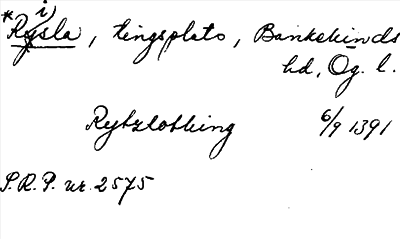 i)
*Rysla, tingsplats, Bankekinds
hd, Ög. l.
Rytzlothing 6/9 1391
S.R.P. nr 2575